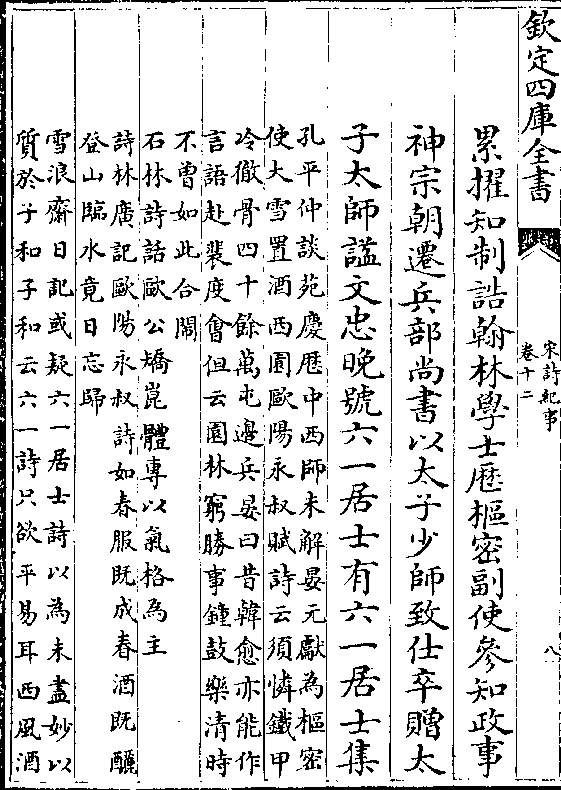 欽定四庫全書
宋詩紀事
卷十二
八
累擢知制誥翰林學士歴樞密副使參知政事
神宗朝遷兵部尚書以太子少師致仕卒贈太
子太師謚文忠晩號六一居士有六一居士集
孔平仲談苑慶厯中西師未解晏元獻為樞密
使大雪置酒西園歐陽永叔賦詩云須憐鐵甲
冷徹骨四十餘萬屯邊兵晏曰昔韓愈亦能作
言語赴裴度會但云園林窮勝事鐘鼓樂清時
不曾如此合鬧
石林詩話歐公矯崑體專以氣格為主
詩林廣記歐陽永叔詩如春服既成春酒既釃
登山臨水竟日忘歸
雪浪齋日記或疑六一居士詩以為未盡妙以
質於子和子和云六一詩只欲平易耳西風酒